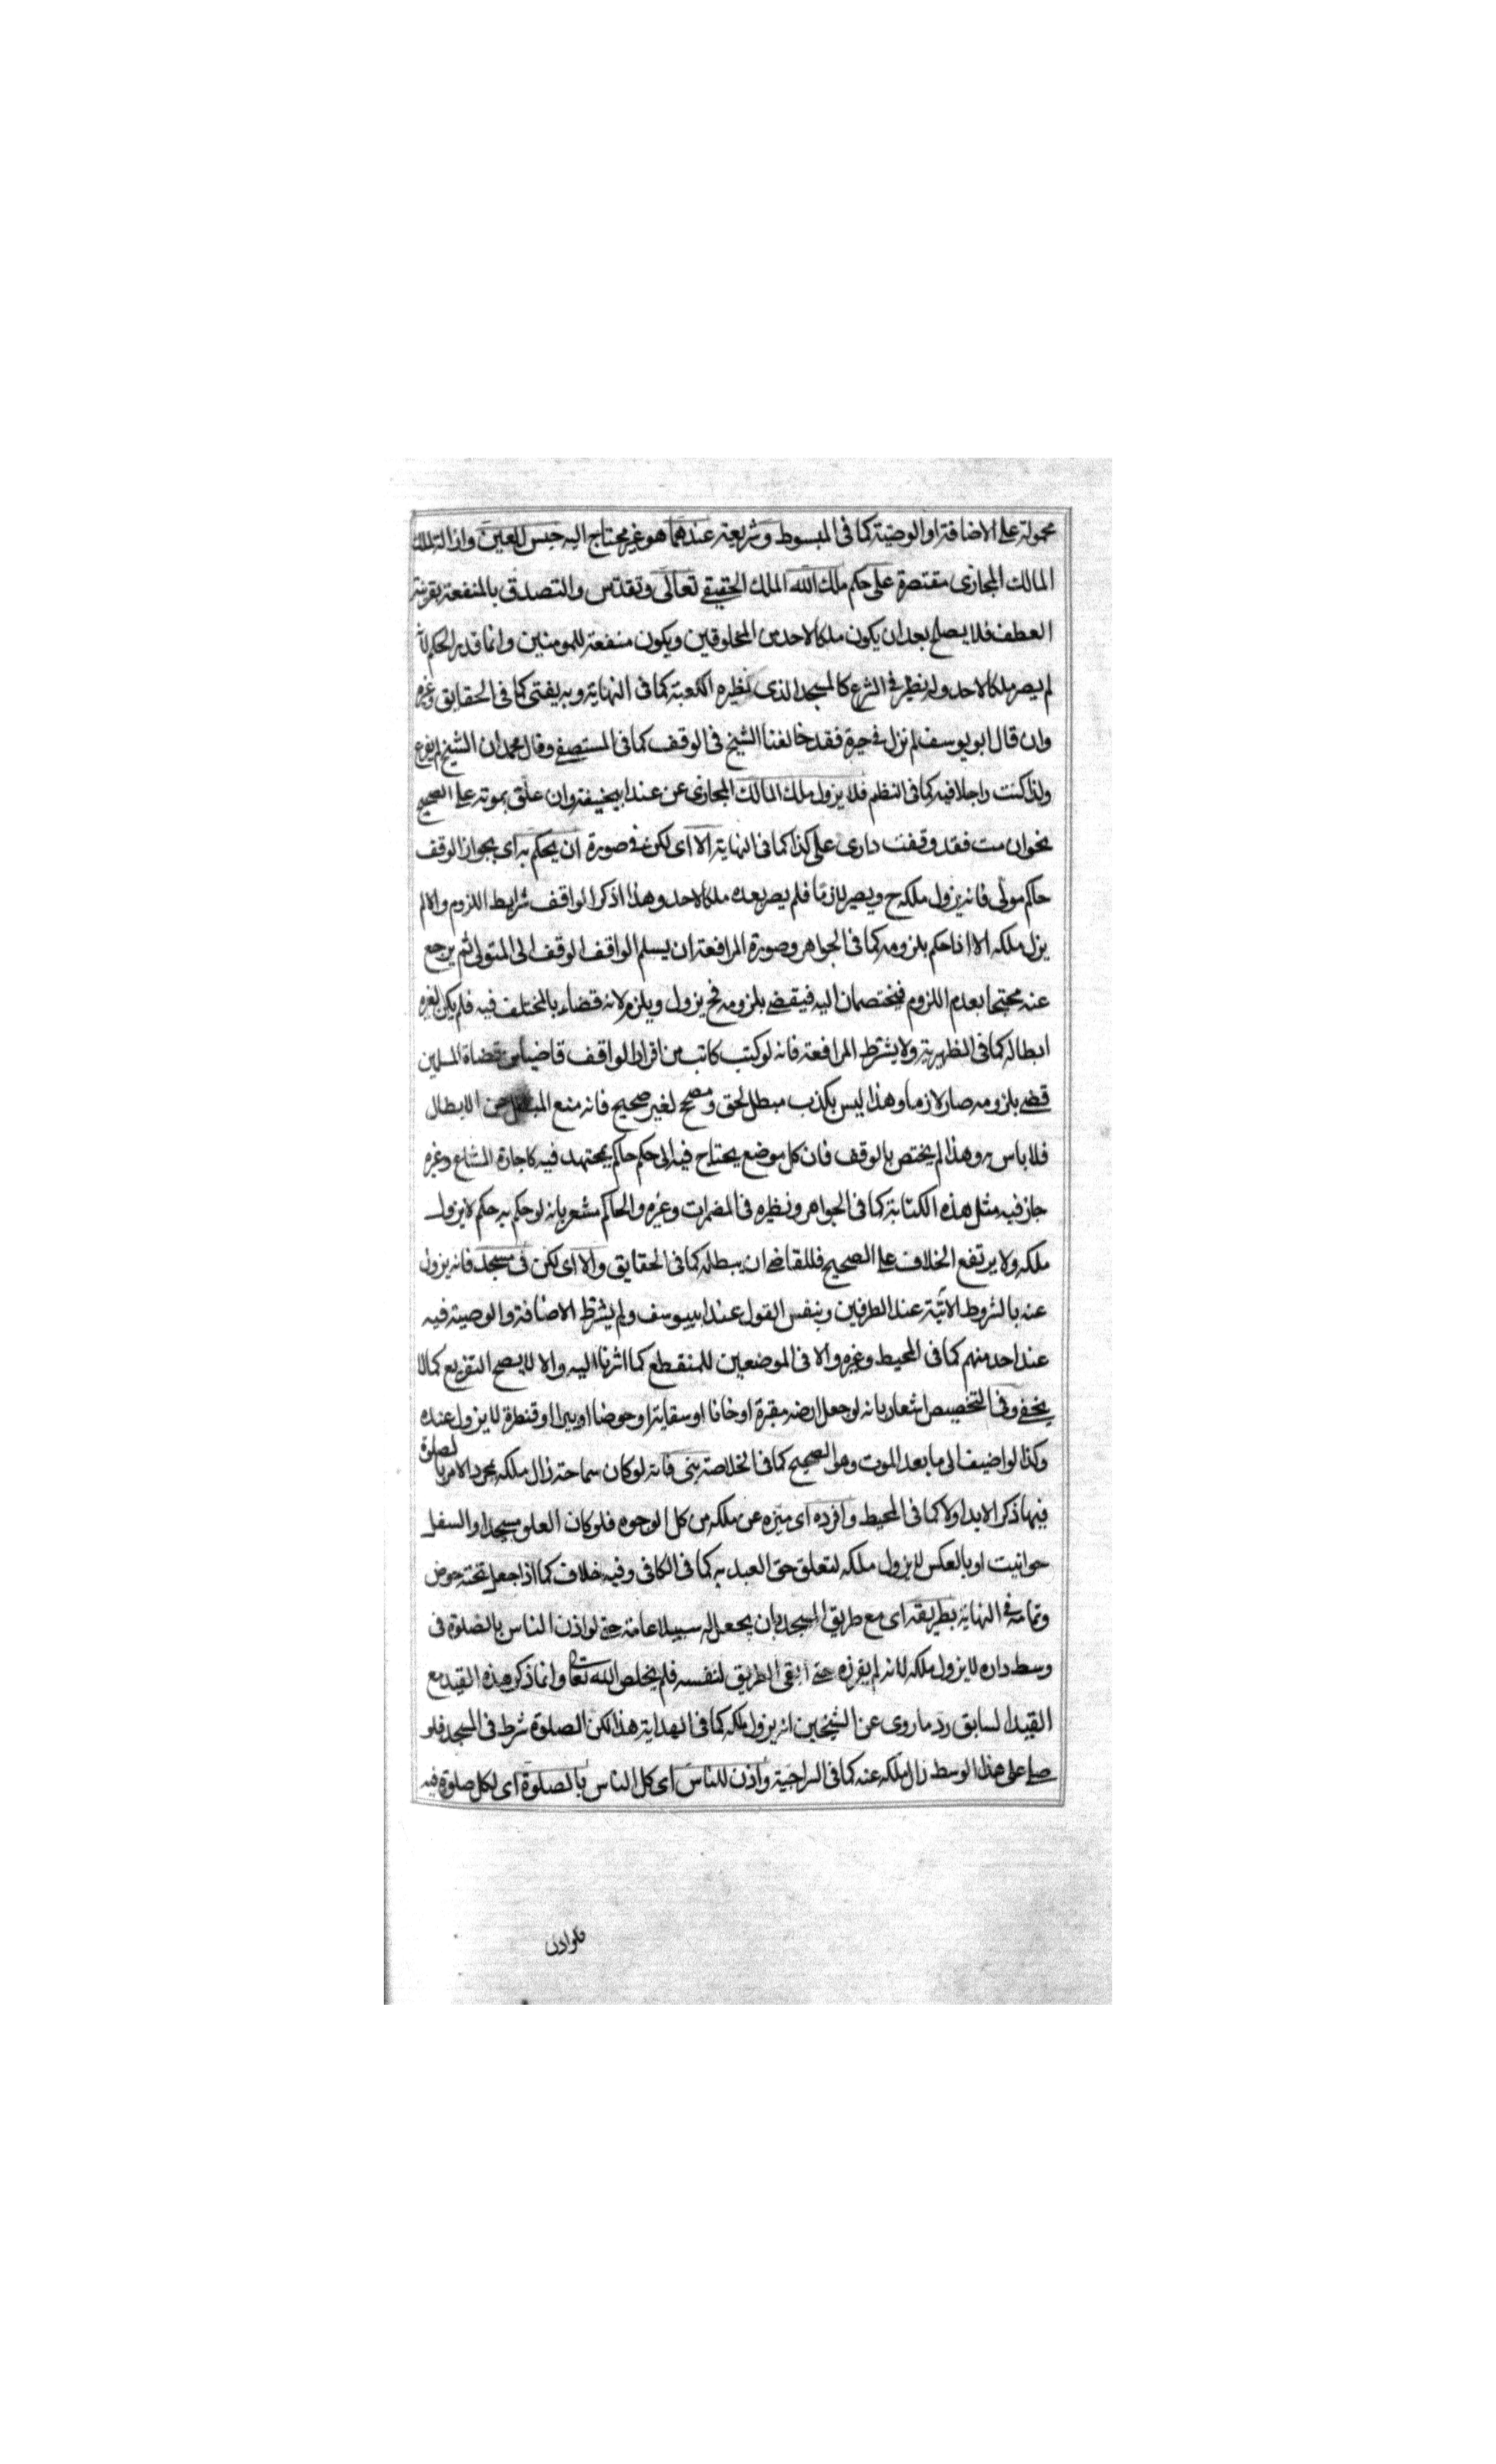 محمولة على الاضافة او الوصية كما فى المبسوط وشريعة عندهما هو غير محتاج اليه حبس العين وازالة الملك
المالك المجازى مقتصرة على حكم ملك الله الملك الحقيقى تعالى وتقدس والتصدق بالمنفعة بقرينة
العطف فلا يصلح بعد ان يكون ملكا لاحد من المخلوقين ويكون منفعة للمومنين وانما قدر الحكم لانه
لم يصر ملكا لاحد وله نظير فى الشرع كالمسجد الذى نظيره الكعبة كما فى النهاية وبه يفتى كما فى الحقايق وغيره
وان قال ابو يوسف لم نزل فى حيرة فقد خالفنا الشيخ فى الوقف كما فى المستصفى وقال محمد ان الشيخ لم يفرع
ولذا كنت راجلا فيه كما فى النظم فلا يزول ملك المالك المجازى عن عند ابيحنيفة وان علق بموته على الصحيح
نحو ان مت فقد وقفت دارى على كذا كما فى النهاية الا اى لكن فى صورة ان يحكم به اى بجواز الوقف
حاكم مولى فانه يزول ملكه ح ويصير لازما فلم يصر بعده ملكا لاحد وهذا اذ كرالواقف شرايط اللزوم والا لم
يزل ملكه الا اذا حكم بلزومه كما فى الجواهر وصورة المرافعة ان يسلم الواقف الوقف الى المتولى ثم يرجع
عنه محتجا بعدم اللزوم فيختصمان اليه فيقضى بلزومه فح يزول ويلزم لانه قضاء بالمختلف فيه فلم يكن لغيره
ابطاله كما فى الظهيرية ولا يشترط المرافعة فانه لو كتب كاتب من اقرار الواقف قاضيا من قضاة المسلمين
قضى بلزومه صار لازما وهذا ليس بكذب مبطل لحق ومصحح لغير صحيح فانه منع المبطل عن الابطال
فلا باس به وهذا لم يختص بالوقف فان كل موضع يحتاج فيه الى حكم حاكم بمجتهد فيه كاجارة المشاع وغيره
جاز فيه مثل هذه الكتابة كما فى الجواهر ونظيره فى المضمرات وغيره والحاكم مشعر بانه لو حكم به حكم لا يزول
ملكه ولا يرتفع الخلاف على الصحيح فللقاضى ان يبطله كما فى الحقايق والا اى لكن فى مسجد فانه يزول
عنه بالشروط الاتية عند الطرفين وبنفس القول عند ابييوسف ولم يشترط الاضافة والوصية فيه
عند احد منهم كما فى المحيط وغيره والا فى الموضعين للمنقطع كما اشرنا اليه والا لا يصح التفريع كما لا
يخفى وفى التخصيص اشعار بانه لو جعل ارضه مقبرة او خانا او سقاية او حوضا او بيرا او قنطرة لا يزول عنده
وكذا لو اضيف الى ما بعد الموت وهو الصحيح كما فى الخلاصة بنى فانه لو كان ساحة زال ملكه بمجرد الامر بالصلوة
فيها ذكر الابد اولا كما فى المحيط وافرده اى ميزه عن ملكه من كل الوجوه فلو كان العلو مسجدا والسفل
حوانيت او بالعكس لا يزول ملكه لتعلق حق العبد به كما فى الكافى وفيه خلاف كما اذا جعل تحته حوض
وتمامه فى النهاية بطريقه اى مع طريق المسجد بان يجعل له سبيلا عامة حتى لو اذن الناس بالصلوة فى
وسط داره لا يزول ملكه لانه لم يفرزه حتى ابقى الطريق لنفسه فلم يخلص الله تعالى وانما ذكر هذه القيد مع
القيد السابق رد ما روى عن الشيخين انه يزول ملكه كما فى الهداية هذا لكن الصلوة شرط فى المسجد فلو
صلى على هذا الوسط زال ملكه عنه كما فى السراجية واذن للناس اى كل الناس بالصلوة اى لكل صلوة فيه
فلو اذن